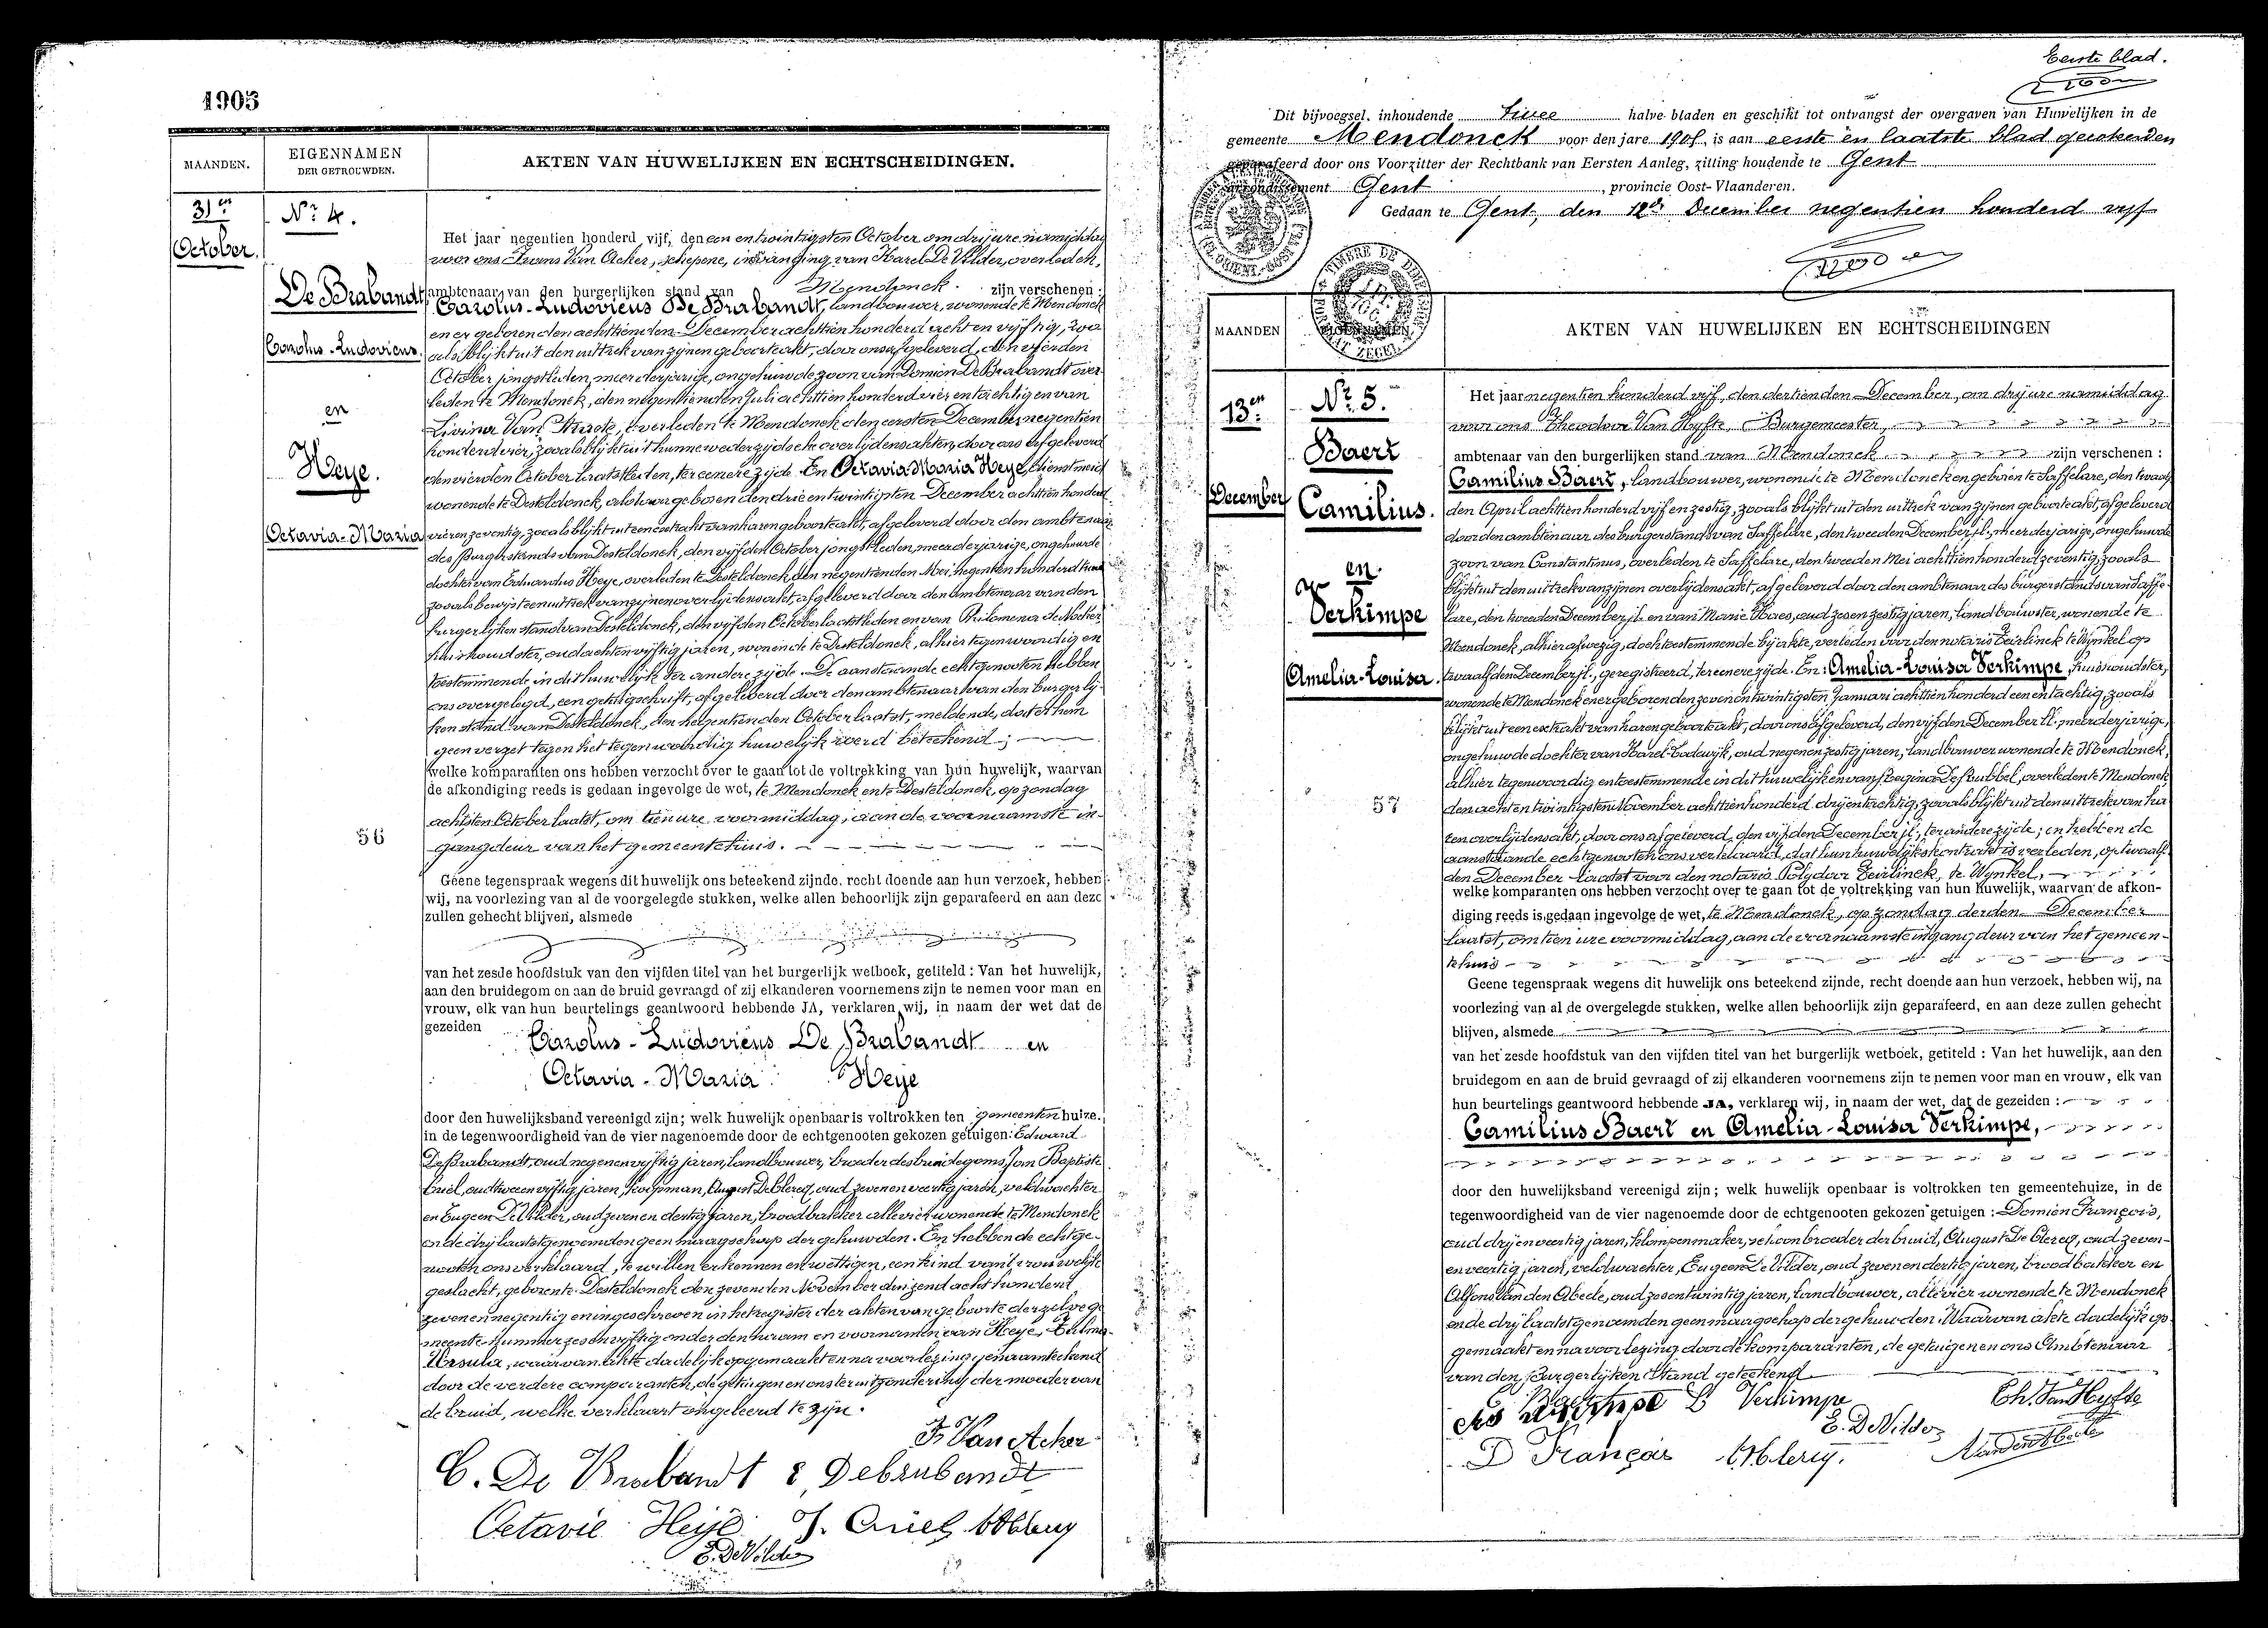 1905
MAANDEN.
EIGENNAMEN
DER GETROUWDEN.
AKTEN VAN HUWELIJKEN EN ECHTSCHEIDINGEN.
31en
October.
Nr 4.
De Brabandt,
Carolus-Ludovicus.
en
Heye.
Octavia-Maria
56
Het jaar negentien honderd vijf, den een en twintigsten October om drij ure namiddag
voor ons Frans Van Acker, schepene, in vervanging van Karel De Vilder, overleden,
ambtenaar van den burgerlijken stand van Mendonck. zijn verschenen:
Carolus-Ludovicus De Brabandt, landbouwer, wonende te Mendonck
en er geboren den achttienden December achttien honderd acht en vijftig, zoo
als blijkt uit den uittrek van zijnen geboorteakt, door ons afgeleverd, den vierden
October jongstleden, meerderjarige, ongehuwde zoon van Domien De Brabandt over-
leden te Mendonck, den negentienden Juli achttien honderd vier en tachtig en van
Livina Van Straete, overleden te Mendonck den eersten December negentien
honderd vier, zooals blijkt uit hunne wederzijdsche overlijdensakten, door ons afgeleverd
den vierden October laatstleden, ter eenere zijde. En Octavia-Maria Heye, dienstmeid
wonende te Desteldonck, aldaar geboren den drie en twintigsten December achttien honderd
vier en zeventig, zooals blijkt uit een extrakt van haren geboorteakt, afgeleverd door den ambtenaar
des Burgerstands van Desteldonck, den vijfden October jongstleden, meerderjarige, ongehuwde
dochter van Eduardus Heye, overleden te Desteldonck den negentienden Mei negentien honderd
zooals bewijst een uittrek van zijnen overlijdensakt, afgeleverd door den ambtenaar van den
burgerlijken stand van Desteldonck, den vijfden October laatstleden en van Philomena De Nocker
huishoudster, oud acht en vijftig jaren, wonende te Desteldonck, alhier tegenwoordig en
toestemmende in dit huwelijk ter andere zijde. De aanstaande echtgenooten hebben
ons overgelegd, een getuigschrift, afgeleverd door den ambtenaar van den burgerlij-
ken stand van Desteldonck, den negentienden October laatst, meldende, dat er hem
geen verzet tegen het tegenwoordig huwelijk werd beteekend;
welke komparanten ons hebben verzocht over te gaan tot de voltrekking van hun huwelijk, waarvan
de afkondiging reeds is gedaan ingevolge de wet, te Mendonck en te Desteldonck, op zondag
achtsten October laatst, om tien ure voormiddag, aan de voornaamste in-
gangdeur van het gemeentehuis.
Geene tegenspraak wegens dit huwelijk ons beteekend zijnde. recht doende aan hun verzoek, hebben
wij, na voorlezing van al de voorgelegde stukken, welke allen behoorlijk zijn geparafeerd en aan deze
zullen gehecht blijven, alsmede
van het zesde hoofdstuk van den vijfden titel van het burgerlijk wetboek, getiteld: Van het huwelijk,
aan den bruidegom en aan de bruid gevraagd of zij elkanderen voornemens zijn te nemen voor man en
vrouw, elk van hun beurtelings geantwoord hebbende JA, verklaren wij, in naam der wet dat de
gezeiden
Carolus-Ludovicus De Brabandt en
Octavia-Maria Heye
door den huwelijksband vereenigd zijn; welk huwelijk openbaar is voltrokken ten gemeenten huize.
in de tegenwoordigheid van de vier nagenoemde door de echtgenooten gekozen getuigen: Edward
De Brabandt, oud negen en vijftig jaren, landbouwer, broeder des bruidegoms, Jan Baptiste
Criel, oud twee en vijftig jaren, koopman, August De Clercq, oud zeven en veertig jaren, veldwachter
en Eugeen De Vilder, oud zeven en dertig jaren, broodbakker alle vier wonende te Mendonck
en de drij laatstgenoemden geen maagschap der gehuwden. En hebben de echtge-
nooten ons verklaard, te willen erkennen en wettigen, een kind van 't vrouwelijk
geslacht, geboren te Desteldonck den zevenden November duizend acht honderd
zeven en negentig en ingeschreven in het register der akten van geboorte derzelve ge-
meente nummer zes en vijftig onder den naam en voornamen van Heye,
Ursula, waarvan akte dadelijk opgemaakt en na voorlezing genaamteekend
door de verdere comparanten, de getuigen en ons ter uitzondering der moeder van
de bruid, welke verklaart ongeleerd te zijn.
Fs Van Acker
C. De Brabandt E, Debrabandt
Octavie Heije J. Criel ADClercq
E. De Vilder
Eerste blad.
Dit bijvoegsel, inhoudende twee halve bladen en geschikt tot ontvangst der overgaven van Huwelijken in de
gemeente Mendonck voor den jare 1905, is aan eerste en laatste blad geteekend en
geparafeerd door ons Voorzitter der Rechtbank van Eersten Aanleg, zitting houdende te Gent
arrondissement Gent, provincie Oost-Vlaanderen.
Gedaan te Gent, den 12de December negentien honderd vijf
TIMBRE DE DIMENSION
MAANDEN
EIGENNAMEN
AKTEN VAN HUWELIJKEN EN ECHTSCHEIDINGEN
13en
December
Nr 5.
Baert
Camilius.
en
Verkimpe
Amelia-Louisa.
57
Het jaar negentien honderd vijf, den dertienden December, om drij ure namiddag
voor ons Theodoor Van Hyfte, Burgemeester,
ambtenaar van den burgerlijken stand van Mendonck zijn verschenen:
Camilius Baert, landbouwer, wonende te Mendonck en geboren te Saffelare, den twaalf-
den April achttien honderd vijf en zestig, zooals blijkt uit den uittrek van zijnen geboorteakt, afgeleverd
door den ambtenaar des burgerstand van Saffelare, den tweeden December jl., meerderjarige, ongehuwde
zoon van Constantinus, overleden te Saffelare, den tweeden Mei achttien honderd zeventig, zooals
blijkt uit den uittrek van zijnen overlijdensakt, afgeleverd door den ambtenaar des burgerstands van Saffe-
lare, den tweeden December jl. en van Marie Haes, oud zes en zestig jaren, landbouwster, wonende te
Mendonck, alhier afwezig, doch toestemmende bij akte, verleden voor den notaris Teirlinck te Wynkel op
twaalfden December jl., geregistreerd, ter eenere zijde. En: Amelia-Louisa Verkimpe, huishoudster,
wonende te Mendonck en er geboren den zeven en twintigsten Januari achttien honderd een en tachtig, zooals
blijkt uit een extrakt van haren geboorteakt, door ons afgeleverd, den vijfden December ll. meerderjarige,
ongehuwde dochter van Karel-Lodewijk, oud negen en zestig jaren, landbouwer wonende te Mendonck,
alhier tegenwoordig en toestemmende in dit huwelijk en van Regina De Bubbel, overleden te Mendonck
den acht en twintigsten November achttien honderd drij en tachtig, zooals blijkt uit den uittrek van ha-
ren overlijdensakt, door ons afgeleverd, den vijfden December jl., ter andere zijde; en hebben de
aanstaande echtgenooten ons verklaard, dat hun huwelijkskontrakt is verleden, op twaalf-
den December laatst voor den notaris Polydoor Teirlinck, te Wynkel,
welke komparanten ons hebben verzocht over te gaan tot de voltrekking van hun huwelijk, waarvan de afkon-
diging reeds is gedaan ingevolge de wet, te Mendonck, op zondag derden December
laatst, om tien ure voormiddag, aan de voornaamste ingangdeur van het gemeen-
tehuis
Geene tegenspraak wegens dit huwelijk ons beteekend zijnde, recht doende aan hun verzoek, hebben wij, na
voorlezing van al de overgelegde stukken, welke allen behoorlijk zijn geparafeerd, en aan deze zullen gehecht
blijven, alsmede
van het zesde hoofdstuk van den vijfden titel van het burgerlijk wetboek, getiteld: Van het huwelijk, aan den
bruidegom en aan de bruid gevraagd of zij elkanderen voornemens zijn te nemen voor man en vrouw, elk van
hun beurtelings geantwoord hebbende JA, verklaren wij, in naam der wet, dat de gezeiden:
Camilius Baert en Amelia-Louisa Verkimpe,
door den huwelijksband vereenigd zijn; welk huwelijk openbaar is voltrokken ten gemeentehuize, in de
tegenwoordigheid van de vier nagenoemde door de echtgenooten gekozen getuigen: Domien François,
oud drij en veertig jaren, klompenmaker, schoonbroeder der bruid, August De Clercq, oud zeven-
en veertig jaren, veldwachter, Eugeen De Vilder, oud zeven en dertig jaren, broodbakker en
Alfons Van den Abeele, oud zes en twintig jaren, landbouwer, alle vier wonende te Mendonck
en de drij laatstgenoemden geen maagschap der gehuwden. Waarvan akte dadelijk op-
gemaakt en na voorlezing door de komparanten, de getuigen en ons Ambtenaar
van den Burgerlijken Stand geteekend
C Baert L Verkimpe Th. Van Hyfte
E. De Vilder
D François ADClercq. A Vanden Abeele